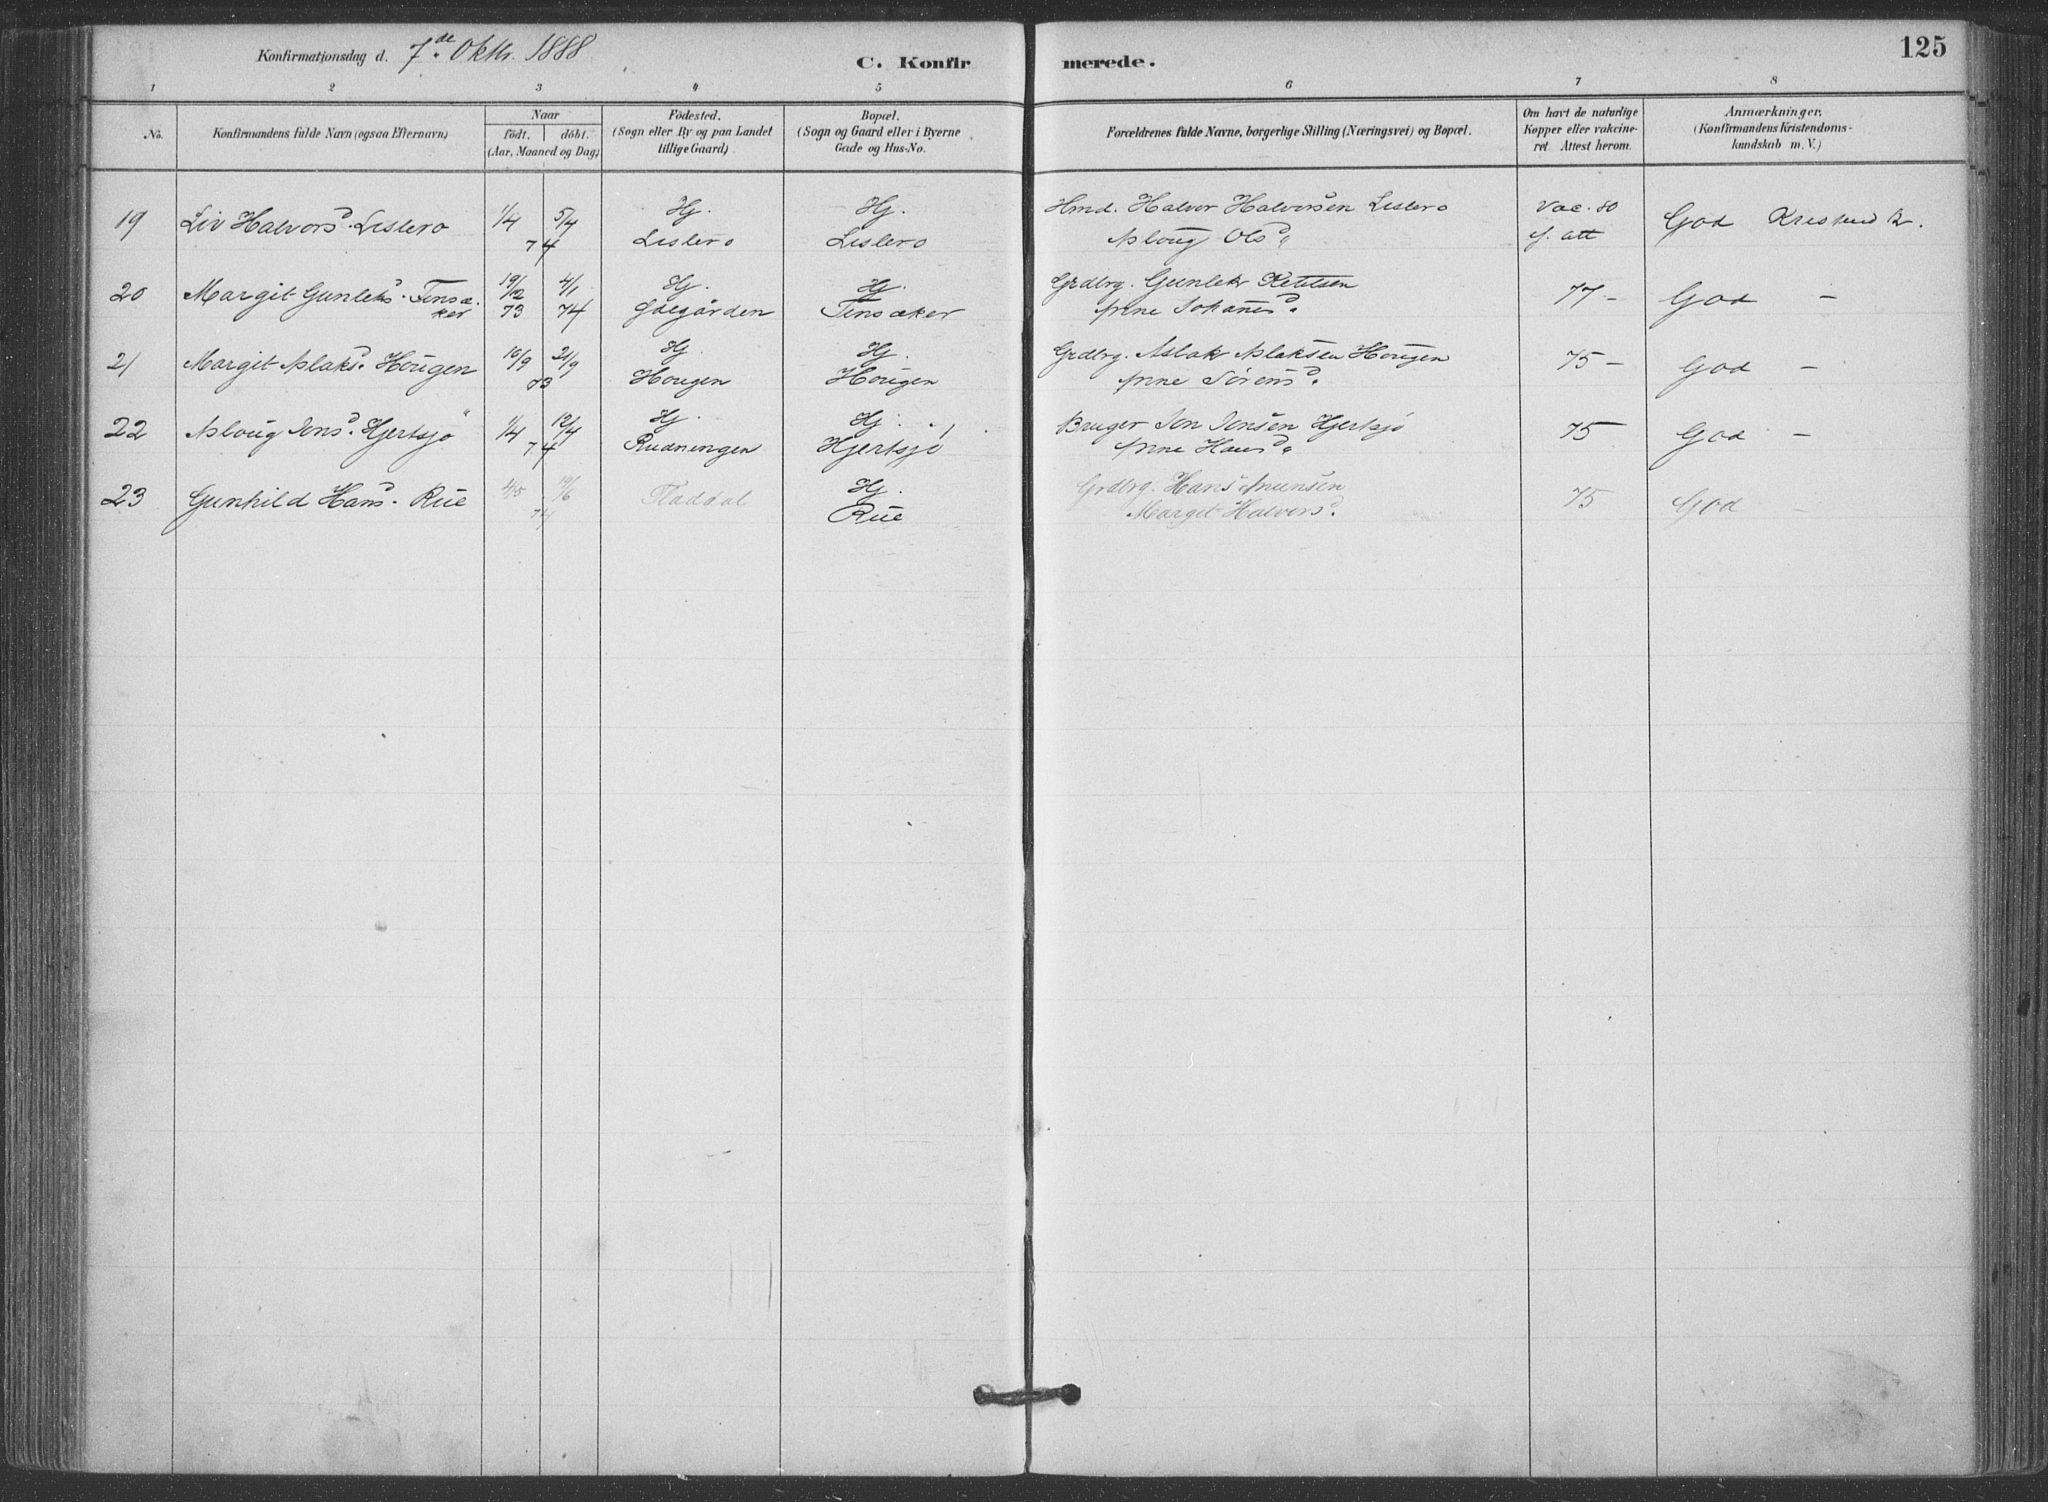 Konfirmationsdag d. 7de Oktbr. 1888
C. Konfirmerede.
125
1 2 3 4 5 6 7 8
No.
Konfirmandens fulde Navn (ogsaa Efternavn)
Naar
födt. döbt.
(Aar, Maaned og Dag)
Födested.
(Sogn eller By og paa Landet
tillige Gaard)
Bopæl.
(Sogn og Gaard eller i Byerne
Gade og Hus-No.
Forældrenes fulde Navne, borgerlige Stilling (Næringsvei) og Bopæl.
Om havt de naturlige
Kopper eller vakcine-
ret. Attest herom.
Anmærkninger.
(Konfirmandens Kristendoms-
kundskab m. V.)
19 Liv Halvorsd. Leslero 1/4 5/4 Hj. Hj. Hmd. Halvor Halvorsen Leslero Vac. 80 God Kristend k.
74 Leslero Leslero Asloug Olsd. f. att
20 Margit Gunleksd. Tinsæ- 19/12 4/1 Hj. Hj. Grdbrg. Gunlek Ketilsen 77 – God –
ker 73 74 Ødegården Tinsæker Anne Johannesd.
21 Margit Aslaksd. Hougen 16/9 21/9 Hj. Hj. Grdbrg. Aslak Aslaksen Hougen 75 – God –
73 Hougen Hougen Anne Sørensd.
22 Asloug Jonsd. Hjertsjö 1/4 12/4 Hj. Hj. Bruger Jon Jonsen Hjertsjø 75 God –
74 Rudningen Hjertsjö Anne Hansd.
23 Gunhild Hansd. Rue 4/5 19/6 Fladdal Hj. Grdbrg. Hans Amunsen 75 God –
74 Rue Margit Halvorsd.